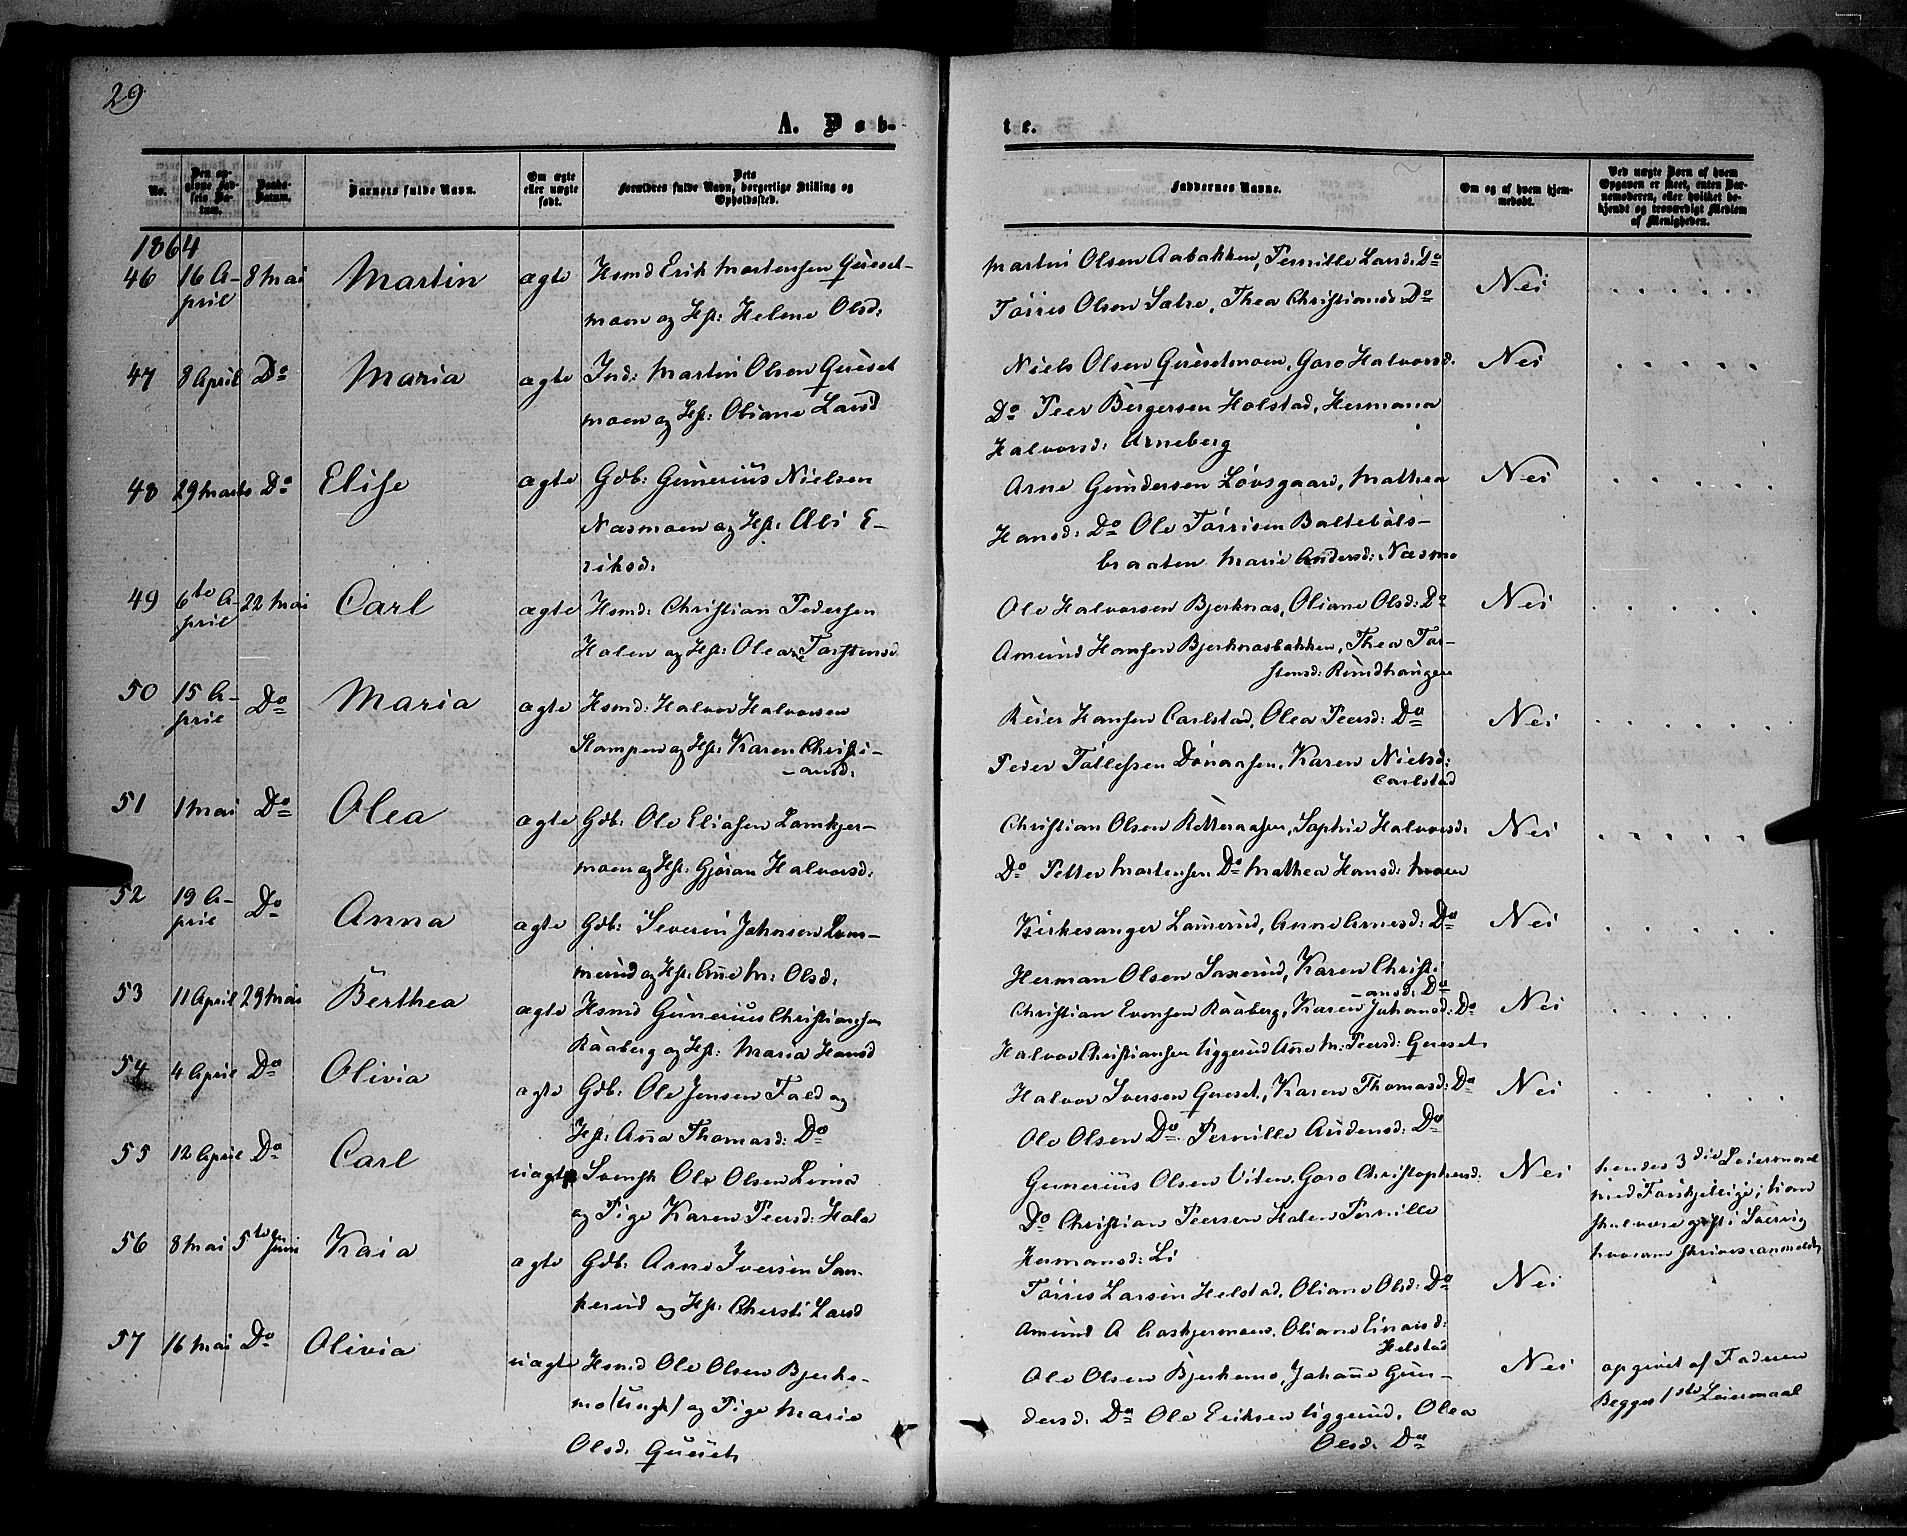 29
A. Døb-
te.
No.
Den op-
givne Fød-
sels Da-
tum.
Daabs-
Datum.
Barnets fulde Navn.
Om ægte
eller uægte
født.
Dets
Forældres fulde Navn, borgerlige Stilling og
Opholdssted.
Faddernes Navne.
Om og af hvem hjem-
medøbt.
Ved uægte Børn af hvem
Opgaven er skeet, enten Bar-
nemoderen, eller hvilket be-
kjendt og troværdigt Medlem
af Menigheden.
1864
46 16 A-
pril 8 Mai Martin ægte Hsmd Erik Mortensen
moen og Hst: Helene Olsd:
Martin Olsen Aabakken, Pernille Larsd: Do
Törris Olsen Sætre, Thea Christiansd: Do
Nei
47 8 April Do Maria ægte Ind: Martin Olsen
moen og Hst: Oliane Larsd
Niels Olsen Goro Halvorsd.
Do Peer Bergersen Holstad, Hermana
Halvorsd: Arneberg
Nei
48 29 Marts Do Elise ægte Gdb: Gunerius Nielsen
Næsmoen og Hst: E-
riksd:
Arne Gundersen Løvsgaard, Mathea
Hansd: Do Ole Törrisen
braaten Marie Andersd: Næsmo
Nei
49 6te A-
pril 22 Mai Carl ægte Hsmd: Christian Pedersen
Holen og Hst: Oleane Torstensd
Ole Halvorsen Bjerknæs, Oliane Olsd: Do
Amund Hansen Bjerknæsbakken, Thea Tor-
stensd: Rundhaugen
Nei
50 15 A-
pril Do Maria ægte Hsmd: Halvor Halvorsen
Stampen og Hst: Karen Christi-
-ansd:
Reier Hansen Carlstad, Olea Peersd: Do
Peder Tollefsen Karen Nielsd:
Carlstad
Nei
51 1 Mai Do Olea ægte Gdb: Ole Eliasen
moen og Hst: Gjøran Halvorsd:
Christian Olsen Sophie Halvorsd:
Do Petter Mortensen Do Mathea Hansd: Moen
Nei
52 19 A-
pril Do Anna ægte Gdb: Severin Johnsen Lam-
merud og Hst: Ane M: Olsd:
Kirkesanger Lamerud, Anne Arnesd: Do
Herman Olsen Karen Christi-
-ansd: Do
Nei
53 11 April 29 Mai Berthea ægte Hsmd Gunerius Christiansen
Raaberg og Hst: Maria Hansd
Christian Evensen Raaberg, Karen Johansd: Do
Halvor Christiansen Uggerud Ane M: Peersd:
Nei
54 4 April Do Olivia ægte Gdb: Ole Jensen Fald og
Hst: Ana Thomasd: Do
Halvor Iversen Karen Thomasd: Do
Ole Olsen Do Pernille Audensd: Do
Nei
55 12 April Do Carl uægte Svensk Ole Olsen
og Pige Karen Peersd: Hole
Gunerius Olsen Viten, Goro Christophersd:
Do Christian Peersen Holen Pernille
Hermansd: Li
Nei
hendes 3die Leiermaal
med Forskjelige; han
skal være gift i Sverig
hvorom skrives
56 8 Mai 5te Juni Kaia ægte Gdb: Arne Iversen
og Hst: Chersti Larsd
Törris Larsen Helstad, Oliane Olsd: Do
Amund A Oliane Einarsd:
Helstad
Nei
57 16 Mai Do Olivia uægte Hsmd Ole Olsen Bjerke-
mo (Ungk) og Pige Marie
Olsd:
Ole Olsen Bjerkemo, Johane Gun-
dersd: Do Ole Eriksen Uggerud, Olea
Olsd: Do
Nei
opgivet af Faderen
Begges 1ste Leiermaal